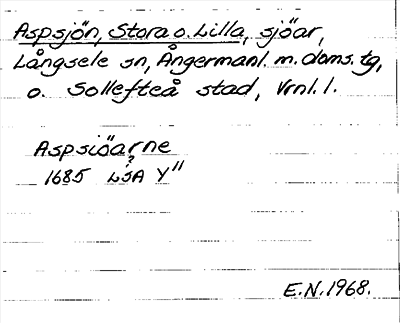 Aspsjön, Stora o. Lilla, sjöar,
Långsele sn, Ångermanl. m. doms. tg,
o. Sollefteå stad, Vrnl. l.
Aspsiöarne
1685 LSA Y"
E.N. 1968.